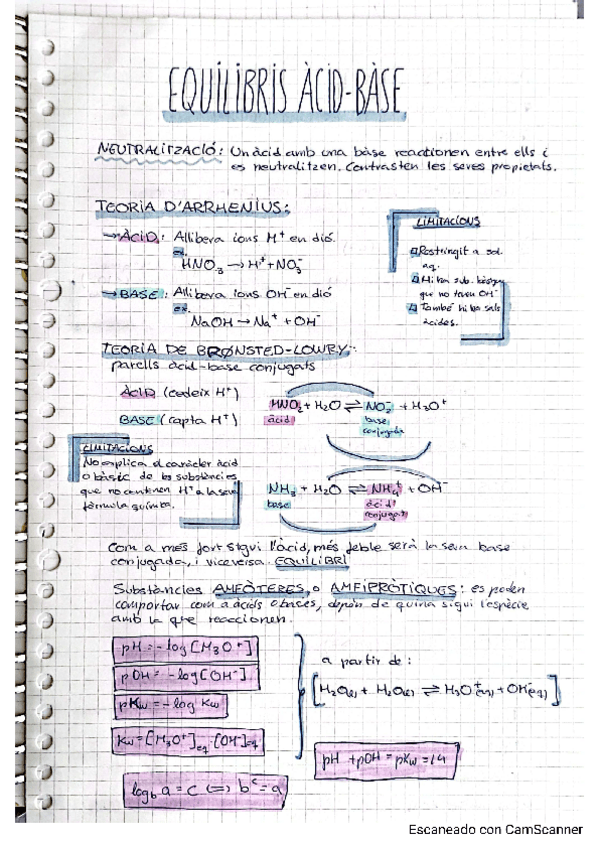 EQUILIBRIS ÀCID-BASE
NEUTRALITZACIÓ: Un àcid amb una base reaccionen entre ells i
es neutralitzen. Contrasten les seves propietats.
TEORIA D'ARRHENIUS:
→ ÀCID: Allibera ions H⁺ en dió.
ex.
HNO₃ → H⁺ + NO₃⁻
→ BASE: Allibera ions OH⁻ en dió
ex.
NaOH → Na⁺ + OH⁻
LIMITACIONS
Restringit a sol.
aq.
Hi ha sub. bàsiques
que no tenen OH⁻
També hi ha sals
àcides.
TEORIA DE BRØNSTED-LOWRY:
parells àcid-base conjugats
ÀCID (cedeix H⁺)
BASE (capta H⁺)
HNO₂ + H₂O ⇌ NO₂⁻ + H₃O⁺
àcid base
conjugada
LIMITACIONS
No explica el caràcter àcid
o bàsic de les substàncies
que no contenen H⁺ a la seva
fórmula química.
NH₃ + H₂O ⇌ NH₄⁺ + OH⁻
base àcid
conjugat
Com a més fort sigui l'àcid, més feble serà la seva base
conjugada, i viceversa. EQUILIBRI
Substàncies AMFÒTERES, o AMFIPRÒTIQUES: es poden
comportar com a àcids o bases, depèn de quina sigui l'espècie
amb la que reaccionen.
pH = -log [H₃O⁺]
pOH = -log [OH⁻]
pKw = -log Kw
Kw = [H₃O⁺]eq · [OH⁻]eq
a partir de:
[H₂O(l) + H₂O(l) ⇌ H₃O⁺(aq) + OH⁻(aq)]
pH + pOH = pKw = 14
log_b a = c (=) b^c = a
Escaneado con CamScanner